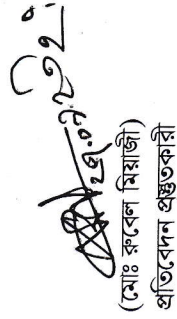 ২৫.০৭.২৩ইং
(মোঃ রুবেল মিয়াজী)
প্রতিবেদন প্রস্তুতকারী